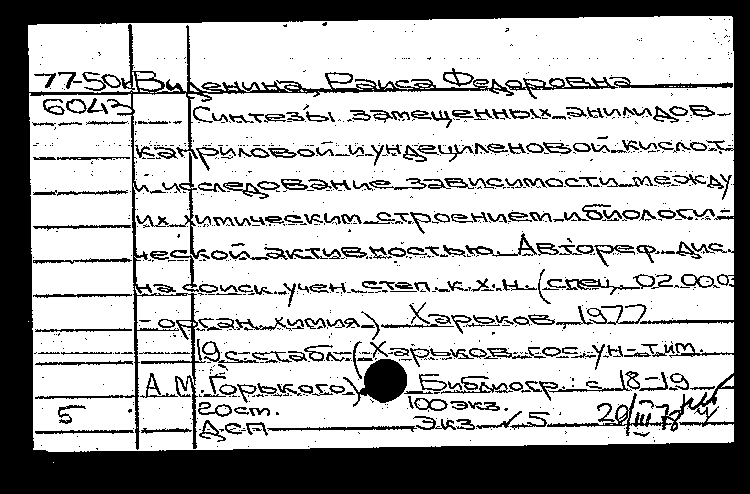 77-50к Виденина, Раиса Федоровна
6043 Синтезы замещенных анилидов
каприловой и ундециленовой кислот
и исследование зависимости между
их химическим строением и биологи-
ческой активностью. Автореф. дис.
на соиск. учен. степ. к.х.н. (спец. 02.00.03
- орган. химия) Харьков, 1977
19 с. с табл. (Харьков. гос. ун-т им.
А.М. Горького). Библиогр.: с 18-19
5 20 ст. 100 экз.
ДСП Экз. ✓ 5 20/III 78